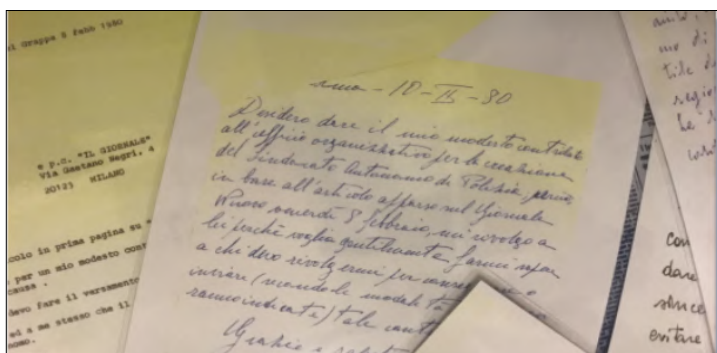 Grappa 8 febb 1980
e p.c. "IL GIORNALE"
Via Gaetano Negri, 4
20123 MILANO
colo in prima pagina su
per un mio modesto con
causa.
devo fare il versamento
ed a me stesso che il
nomo.
10-II-80
Desidero dare il mio modesto contributo
all'ufficio organizzativo per la creazione
del Sindacato Autonomo di Polizia perciò,
in base all'articolo apparso sul Giornale
Nuovo venerdì 8 febbraio, mi rivolgo a
lei perchè voglia gentilmente farmi sapere
a chi devo rivolgermi per
inviare (secondo le modalità
ranno indicate) tale cont
Grazie e
mo di
tile
regio
Le
con
dare
since
evitare